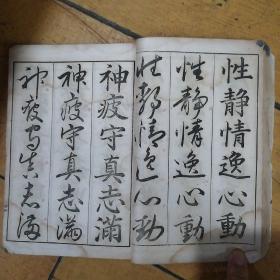 性静情逸心動
性静情逸心動
性静情逸心動
神疲守真志滿
神疲守真志滿
神疲守真志滿